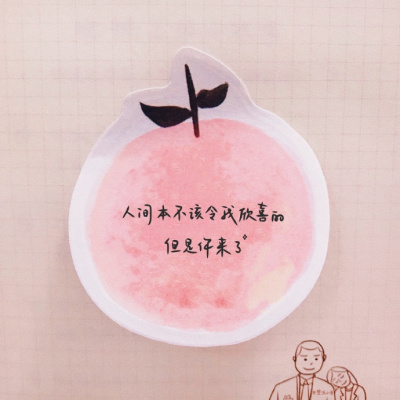 人间本不该令我欣喜的
但是你来了。